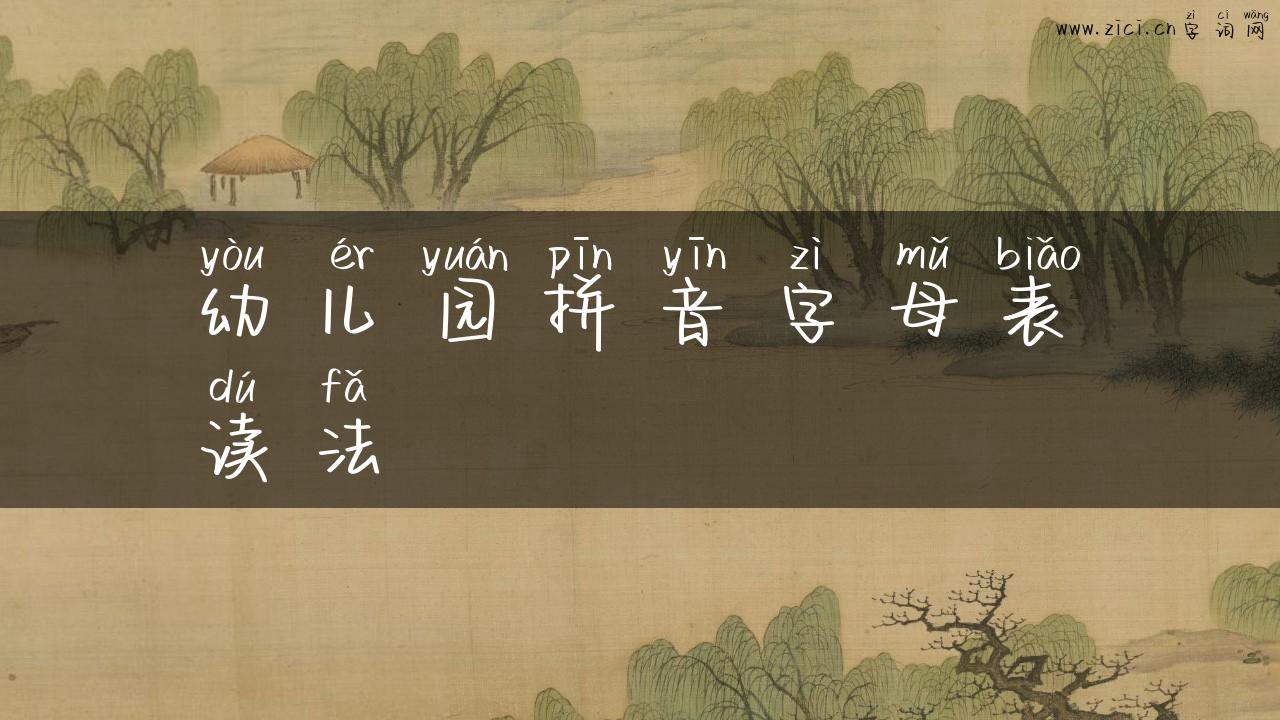 zì cí wǎng
www.zici.cn 字 词 网
yòu ér yuán pīn yīn zì mǔ biǎo
幼 儿 园 拼 音 字 母 表
dú fǎ
读 法